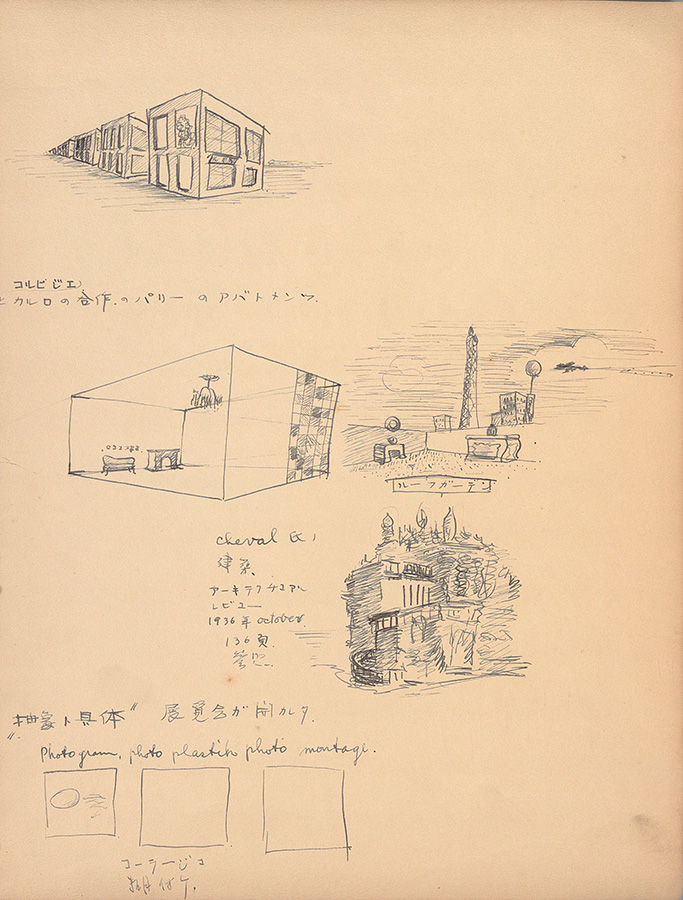 コルビジエノ
とカルロの合作.のパリーのアバトメンツ.
ルーフガーデン
cheval 氏ノ
建築.
アーキテクチュアル
レビュー
1936年 october.
136頁.
"抽象ト具体" 展覧会ガ開カレタ.
Photogram, photo plastik photo montage.
コーラージュ
糊付ケ.